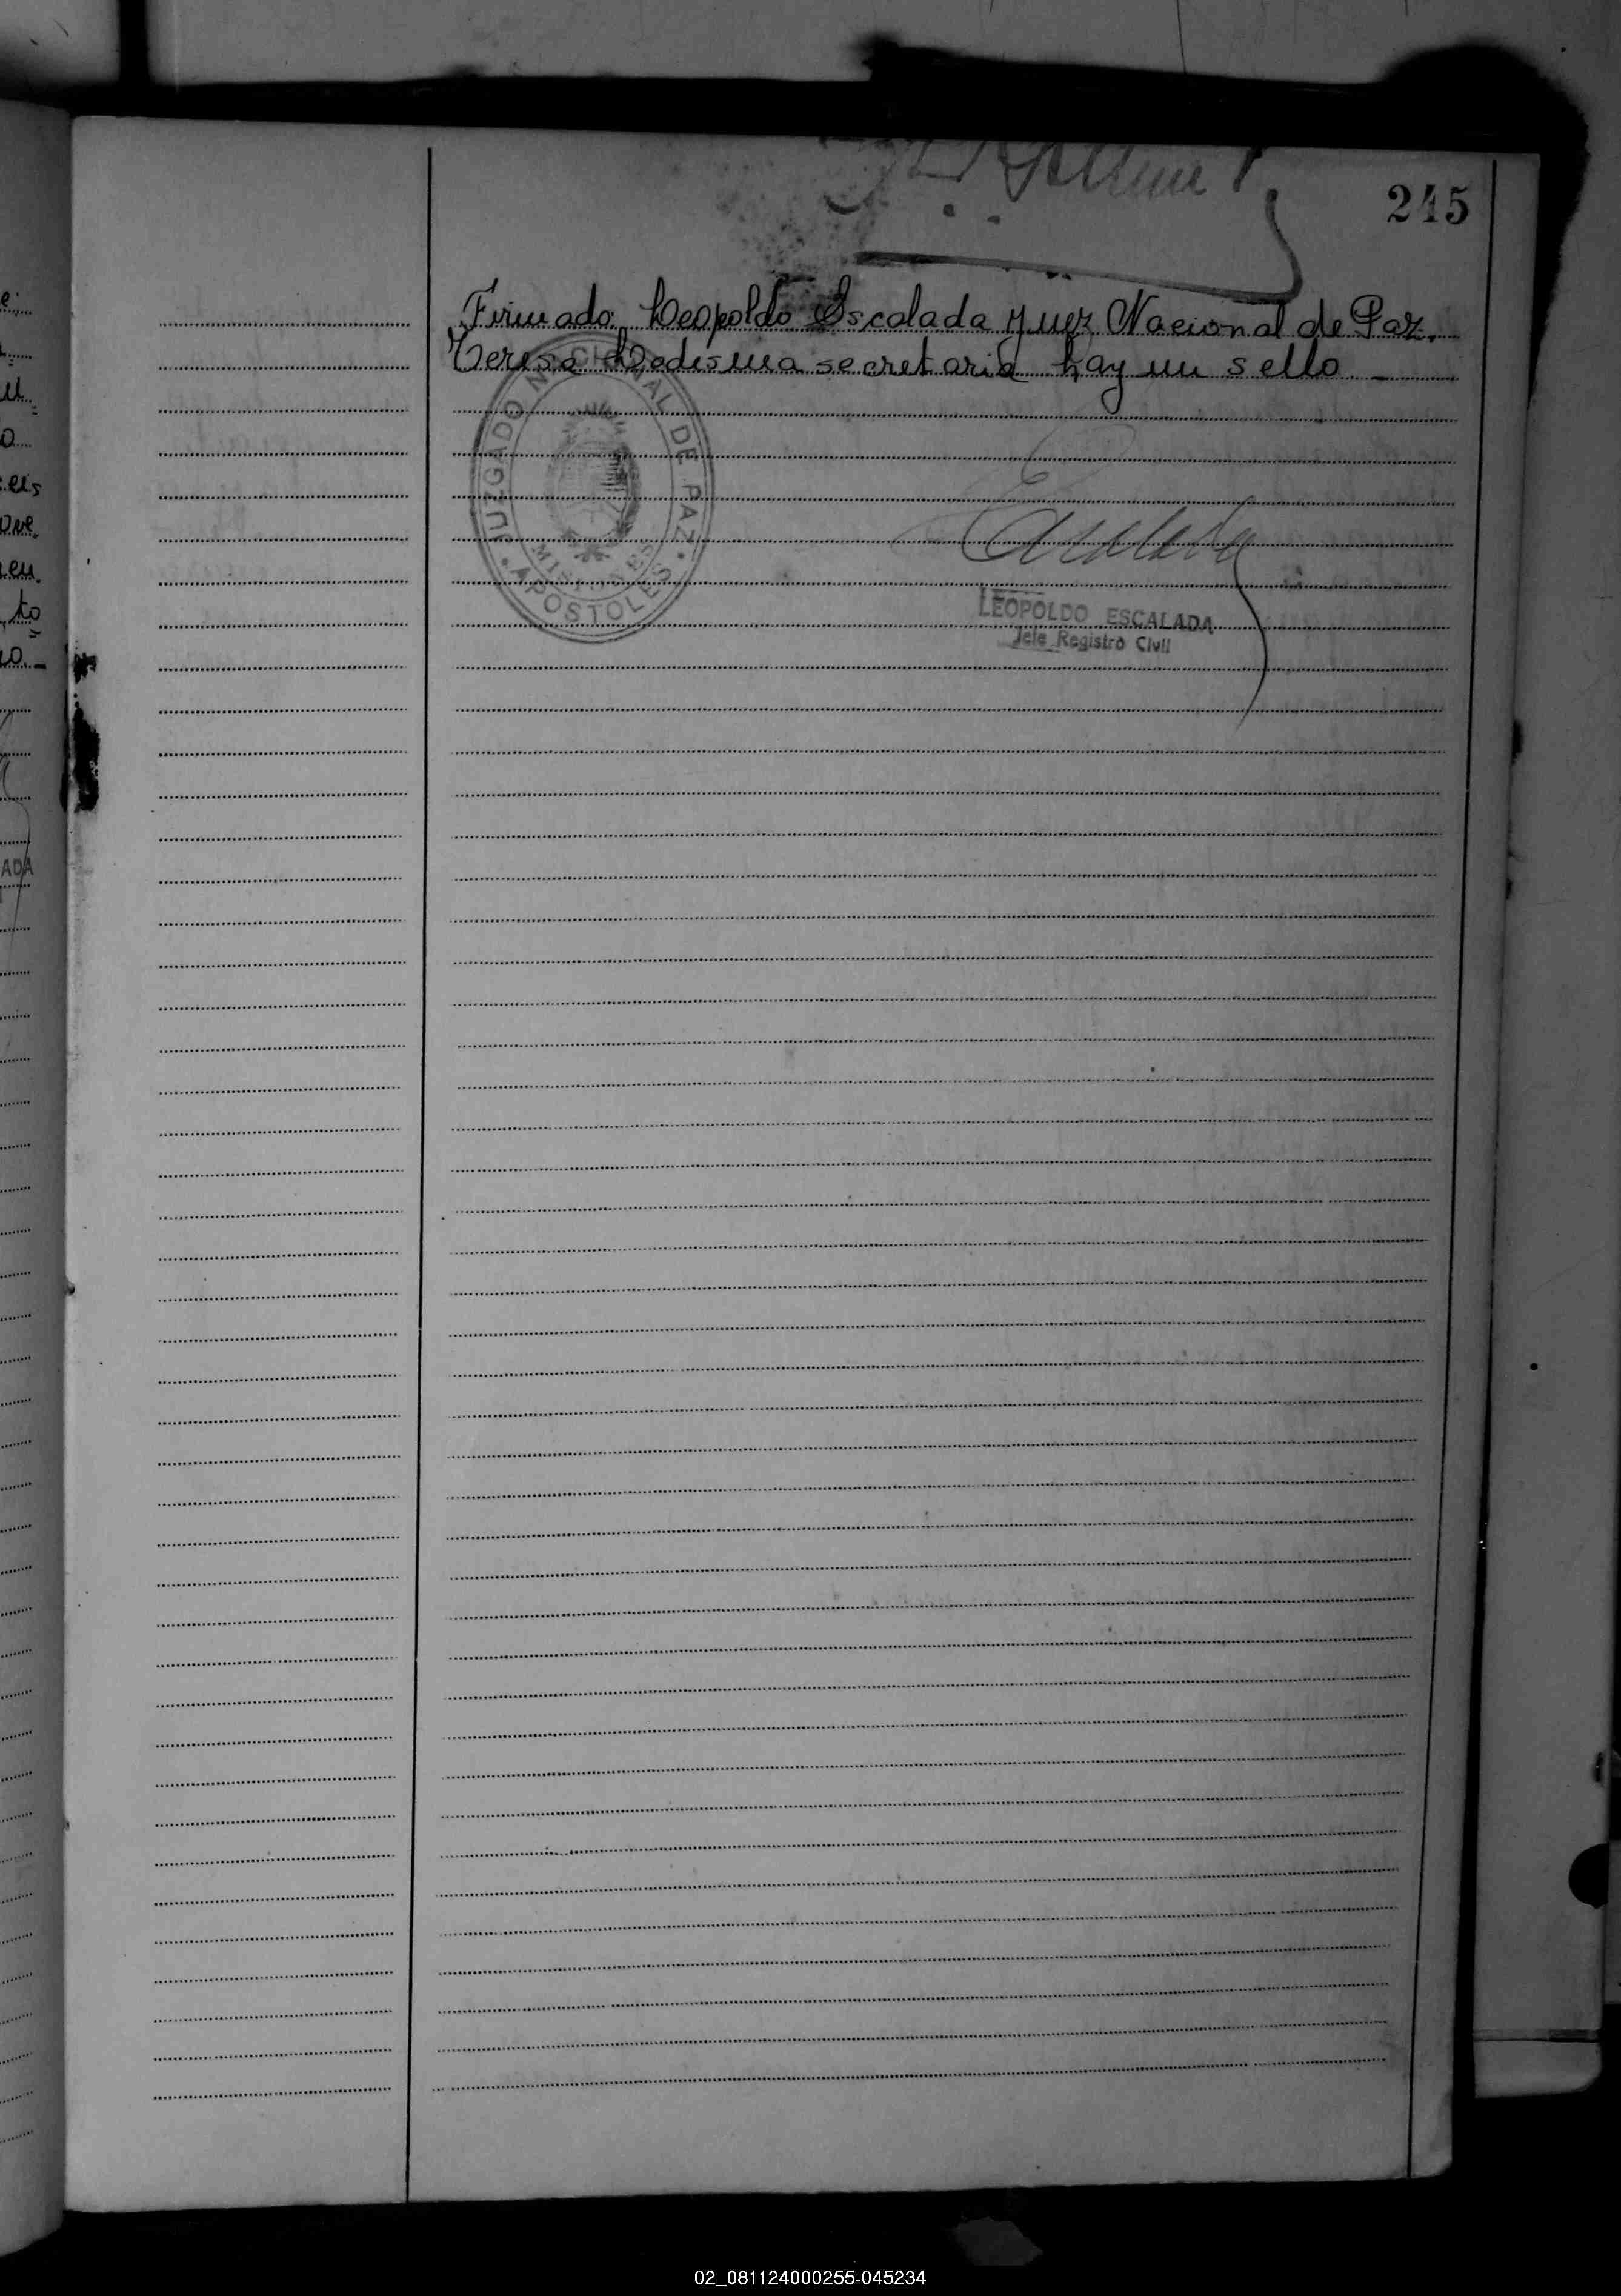 245
Firmado, Leopoldo Escalada Juez Nacional de Paz.
Teresa Ledesma secretaria hay un sello _
JUZGADO NACIONAL DE PAZ
MISIONES
APOSTOLES
Escalada
LEOPOLDO ESCALADA
Jefe Registro Civil
e:
u
o
eis
ove
en.
to
o._
ADA
02_081124000255-045234